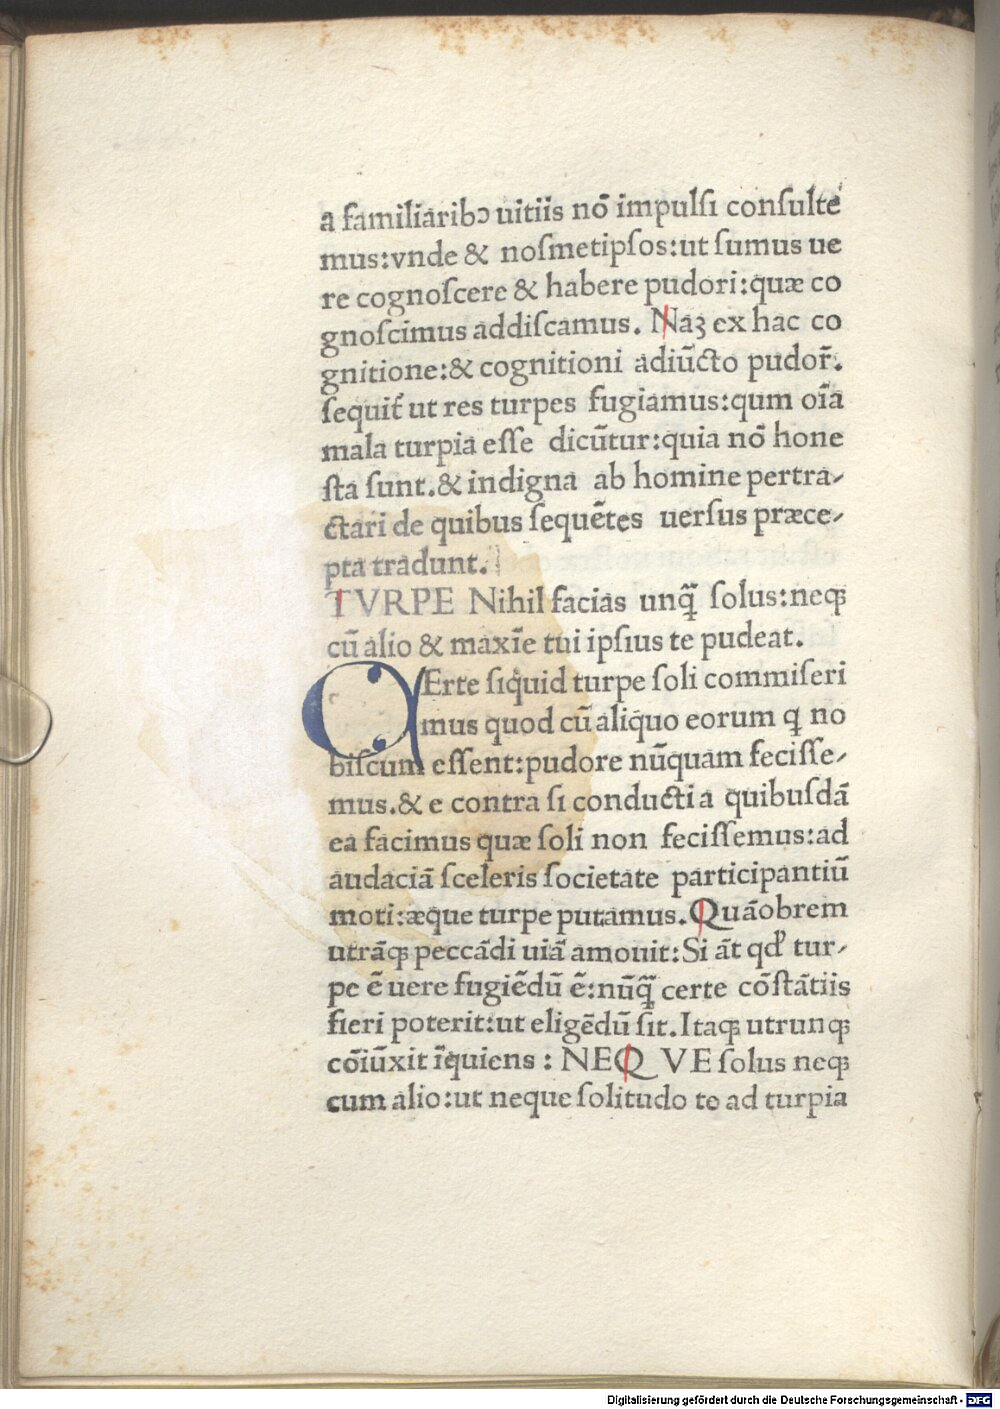 a familiaribꝯ uitiis nō impulſi conſulte
mus:vnde & noſmetipſos:ut ſumus ue
re cognoſcere & habere pudori:quæ co
gnoſcimus addiſcamus. Naꝫ ex hac co
gnitione:& cognitioni adiūcto pudor̄.
ſequit̄ ut res turpes fugiamus:qum oīa
mala turpia eſſe dicūtur:quia nō hone
ſta ſunt.& indigna ab homine pertra-
ctari de quibus ſequētes uerſus præce-
pta tradunt.
TVRPE Nihil facias unq̄ ſolus:neqꝫ
cū alio & maxīe tui ipſius te pudeat.
QErte ſiquid turpe ſoli commiſeri
mus quod cū aliquo eorum ꝗ no
biſcum eſſent:pudore nūquam feciſſe-
mus.& e contra ſi conducti a quibuſdā
ea facimus quæ ſoli non feciſſemus:ad
audaciā ſceleris ſocietate participantiū
moti:æque turpe putamus.Quāobrem
utrāqꝫ peccādi uiā amouit:Si āt qd' tur-
pe ē uere fugiēdū ē:nūq̄ certe cōſtātiis
fieri poterit:ut eligēdū ſit.Itaqꝫ utrunqꝫ
cōiūxit īquiens : NEQ VE ſolus neqꝫ
cum alio:ut neque ſolitudo te ad turpia
Digitalisierung gefördert durch die Deutsche Forschungsgemeinschaft - DFG